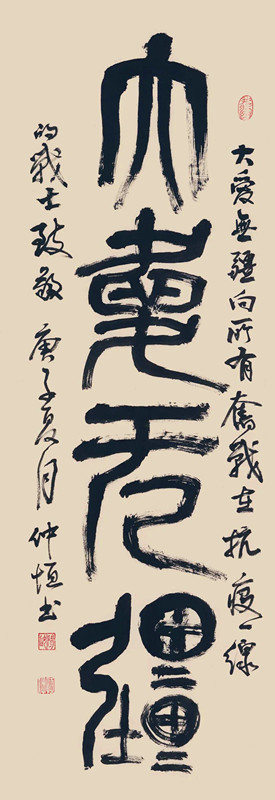 大爱无疆
大愛無疆向所有奮戰在抗疫一線
的战士致敬 庚子夏月 仲恒书